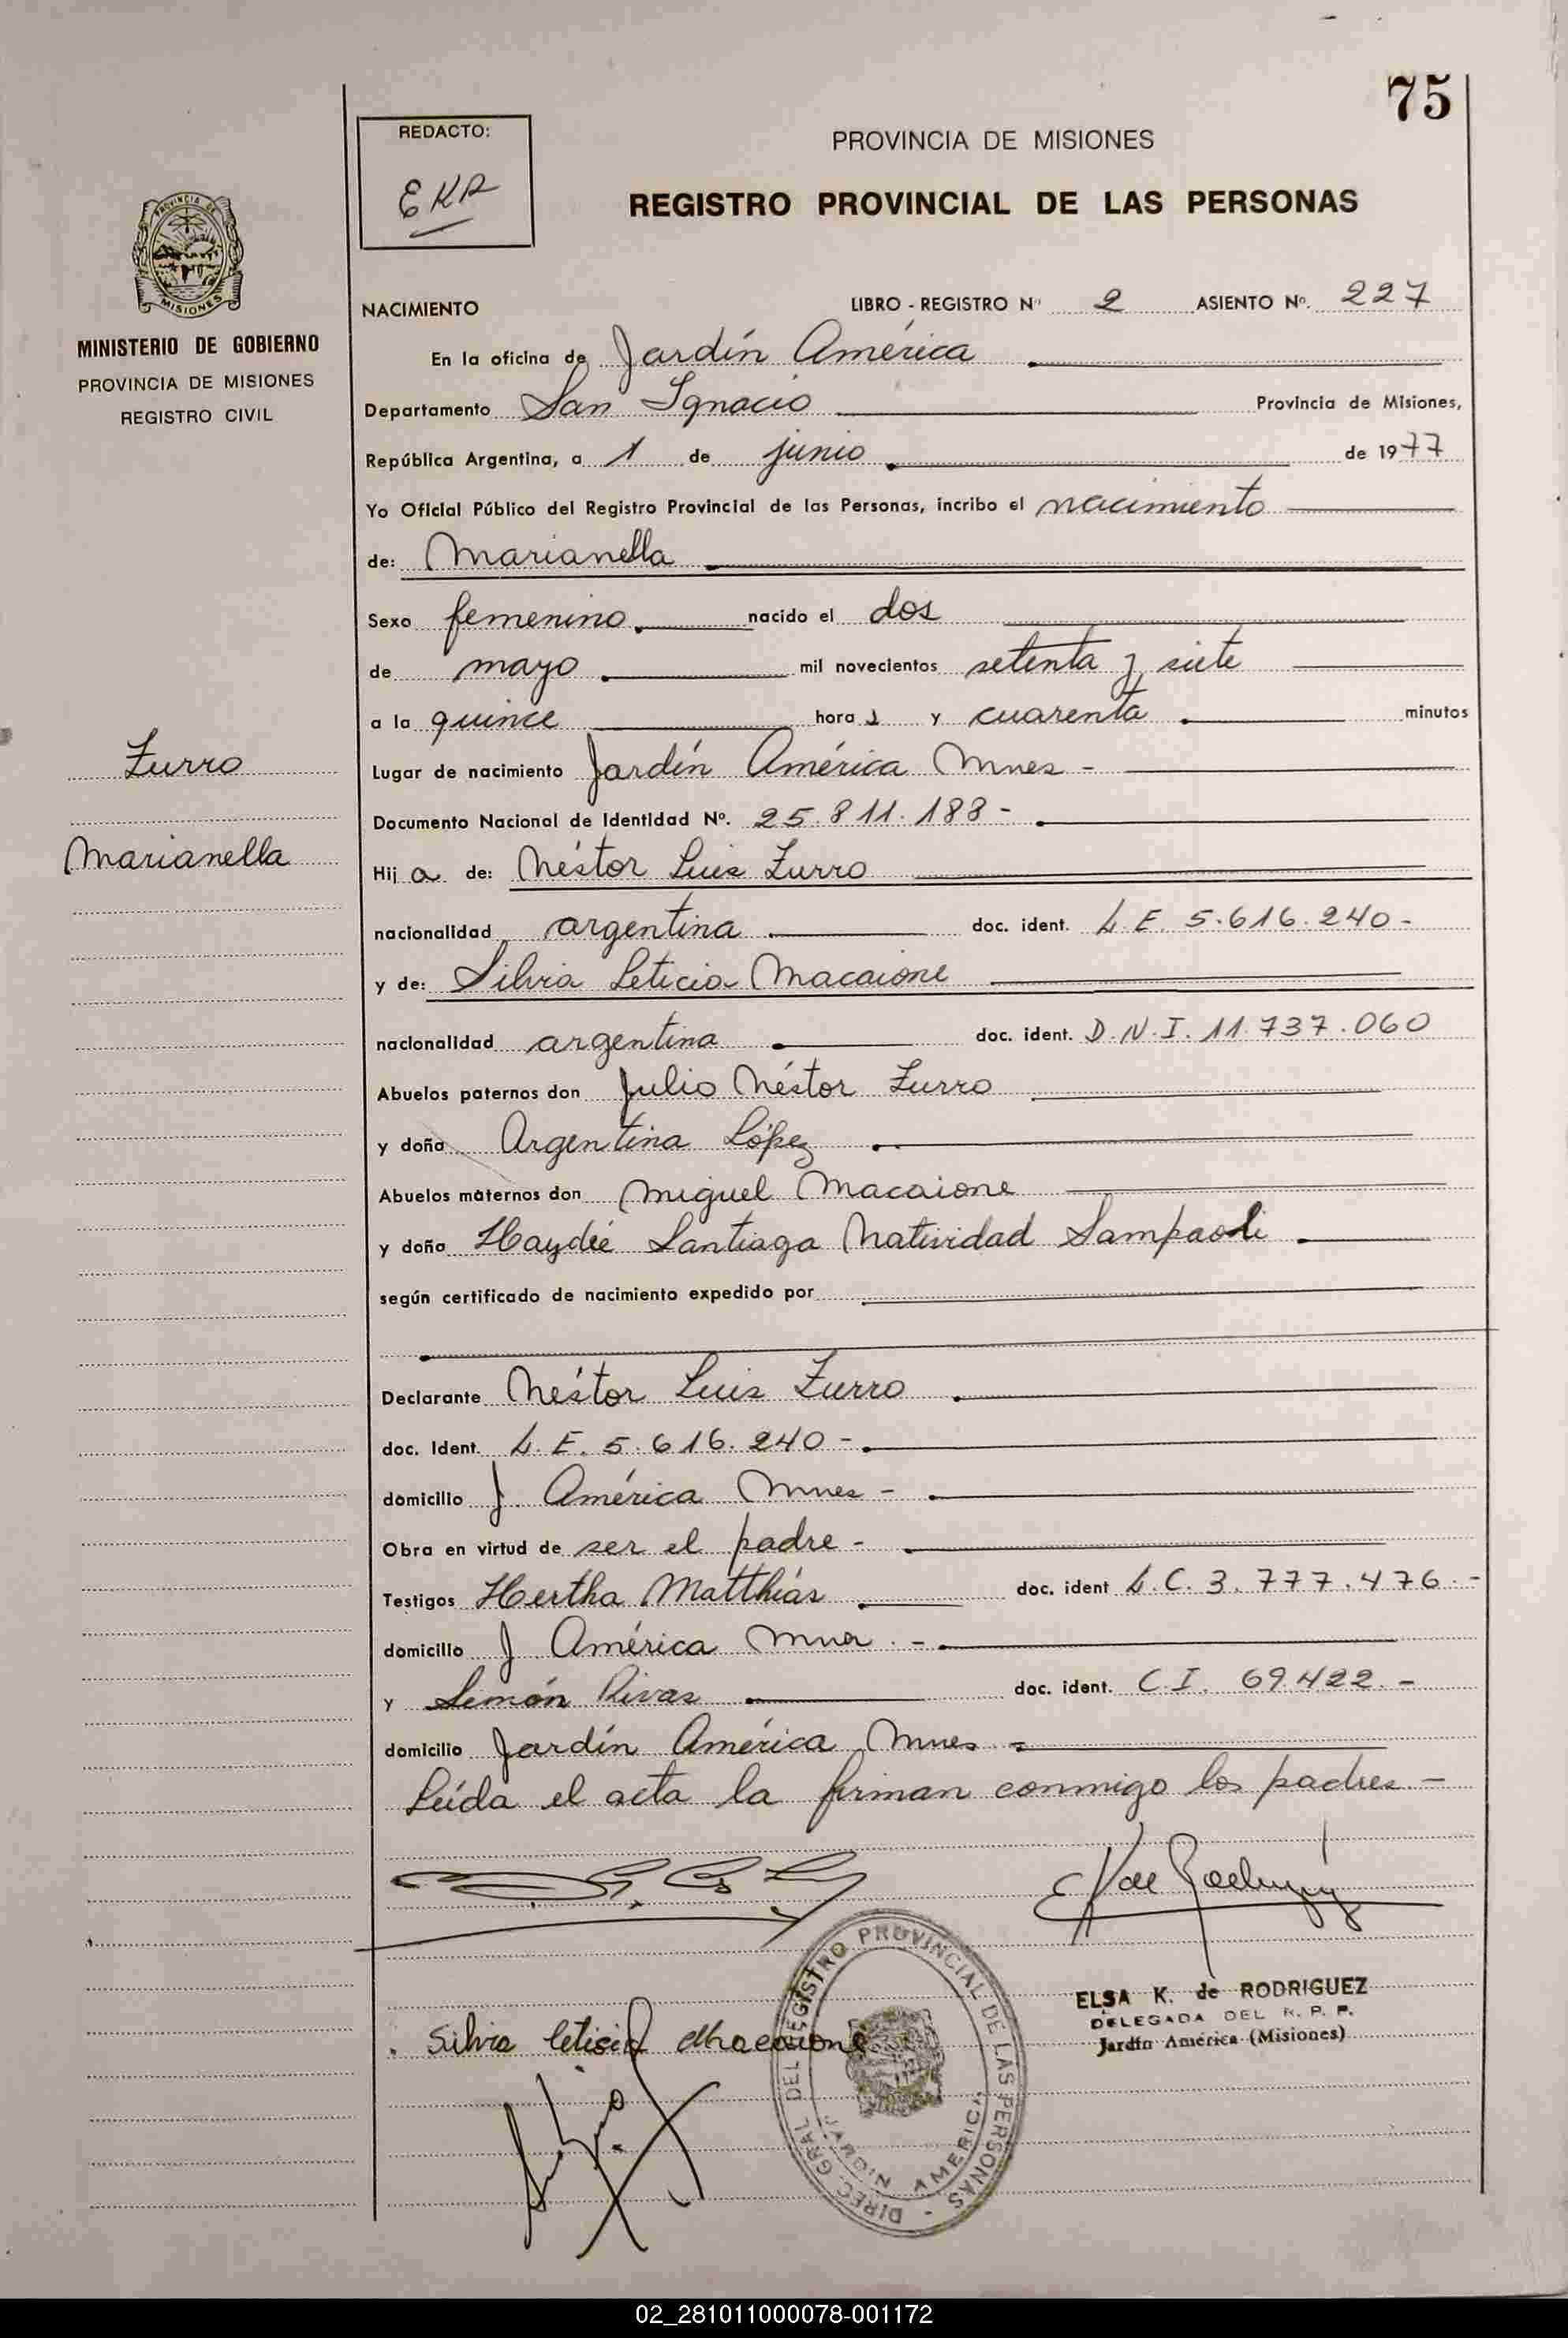 75
REDACTO:
EKR
PROVINCIA DE MISIONES
REGISTRO PROVINCIAL DE LAS PERSONAS
MISIONES
MINISTERIO DE GOBIERNO
PROVINCIA DE MISIONES
REGISTRO CIVIL
NACIMIENTO LIBRO - REGISTRO Nº 2 ASIENTO Nº. 227
En la oficina de Jardín América
Departamento San Ignacio Provincia de Misiones,
República Argentina, a 1 de junio de 1977
Yo Oficial Público del Registro Provincial de las Personas, incribo el nacimiento
de: Marianella
Sexo femenino. nacido el dos
de mayo mil novecientos setenta y siete
a la quince hora s y cuarenta minutos
Zurro
Marianella
Lugar de nacimiento Jardín América Mnes -
Documento Nacional de Identidad Nº. 25.811.188 -
Hij a de: Néstor Luis Zurro
nacionalidad argentina doc. ident. L.E. 5.616.240 -
y de: Silvia Leticia Macaione
nacionalidad argentina doc. ident. D.N.I. 11.737.060
Abuelos paternos don Julio Néstor Zurro
y doña Argentina López
Abuelos maternos don Miguel Macaione
y doña Haydée Santiaga Natividad Sampaoli
según certificado de nacimiento expedido por
Declarante Néstor Luis Zurro
doc. Ident. L.E. 5.616.240 -
domicilio J. América Mnes -
Obra en virtud de ser el padre -
Testigos Hertha Matthias doc. ident L.C. 3.777.476 -
domicilio J América Mnes. -
y Simón Rivas doc. ident. C.I. 69.422. -
domicilio Jardín América Mnes. =
Leída el acta la firman conmigo los padres -
E K de Rodriguez
ELSA K. de RODRIGUEZ
DELEGADA DEL R. P. P.
Jardín América (Misiones)
Silvia Leticia Macaione
DIREC. GRAL. DEL REGISTRO PROVINCIAL DE LAS PERSONAS -
JARDIN AMERICA
02_281011000078-001172